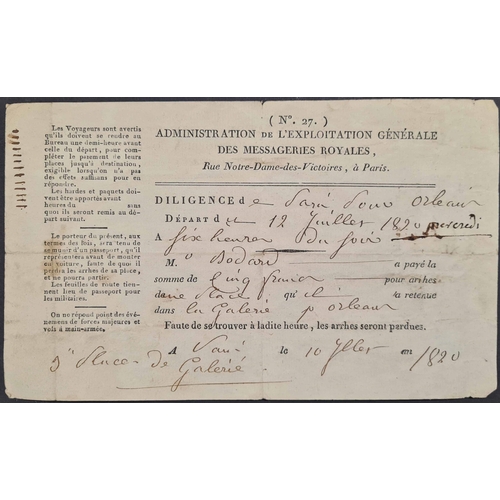 Les Voyageurs sont avertis
qu'ils doivent se rendre au
Bureau une demi-heure avant
celle du départ, pour com-
pléter le paiement de leurs
places jusqu'à destination,
exigible lorsqu'on n'a pas
des effets suffisans pour en
répondre.
Les hardes et paquets doi-
vent être apportés avant
heures du
quoi ils seront remis au dé-
part suivant.
Le porteur du présent, aux
termes des lois, sera tenu de
se munir d'un passeport, qu'il
représentera avant de monter
en voiture, faute de quoi il
perdra les arrhes de sa place,
et ne pourra partir.
Les feuilles de route tien-
nent lieu de passeport pour
les militaires.
On ne répond point des évé-
nemens de forces majeures et
vols à main-armée.
( N°. 27. )
ADMINISTRATION DE L'EXPLOITATION GÉNÉRALE
DES MESSAGERIES ROYALES,
Rue Notre-Dame-des-Victoires, à Paris.
DILIGENCE de Paris pour orleans
DÉPART du 12 Juillet 1820 mercredi
A six heures du soir
M. Bodard a payé la
somme de cinq francs pour arrhes
d'une place qu'il a retenue
dans la Galerie p orleans
Faute de se trouver à ladite heure, les arrhes seront perdues.
A Paris le 10 Jllet en 1820
3e Place de
Galerie